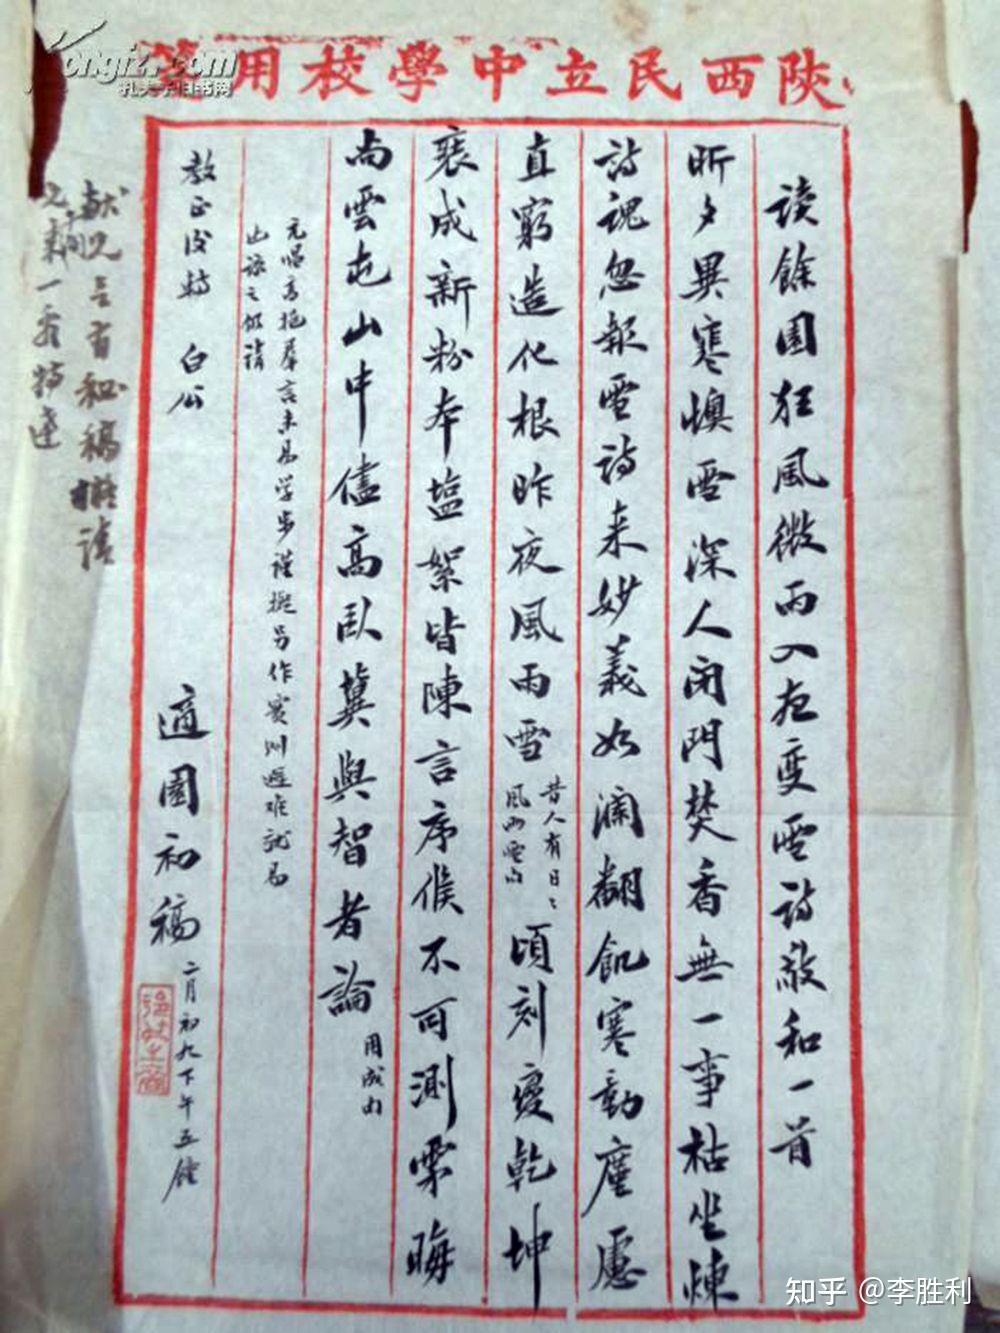 陝西民立中學校用箋
讀餘園狂風微雨入夜變雪詩敬和一首
昕夕異寒燠雪深人闭門焚香無一事枯坐煉
詩魂忽報雪詩来妙義如瀾翻飢寒動廑慮
直窮造化根昨夜風雨雪
昔人有日〻
風雨雪句
頃刻變乾坤
裝成新粉本塩絮皆陳言序候不可測霁晦
尚雲屯山中儘高臥冀與智者論
用成句
元唱高挹羣言未易学步謹擬另作賓州避难就易
山詠之仍請
教正後轉
白公
適園初稿
二月初九下午五鐘
献兄言有秘稿擬請
一看轉達
孔夫子旧书网
知乎 @李胜利